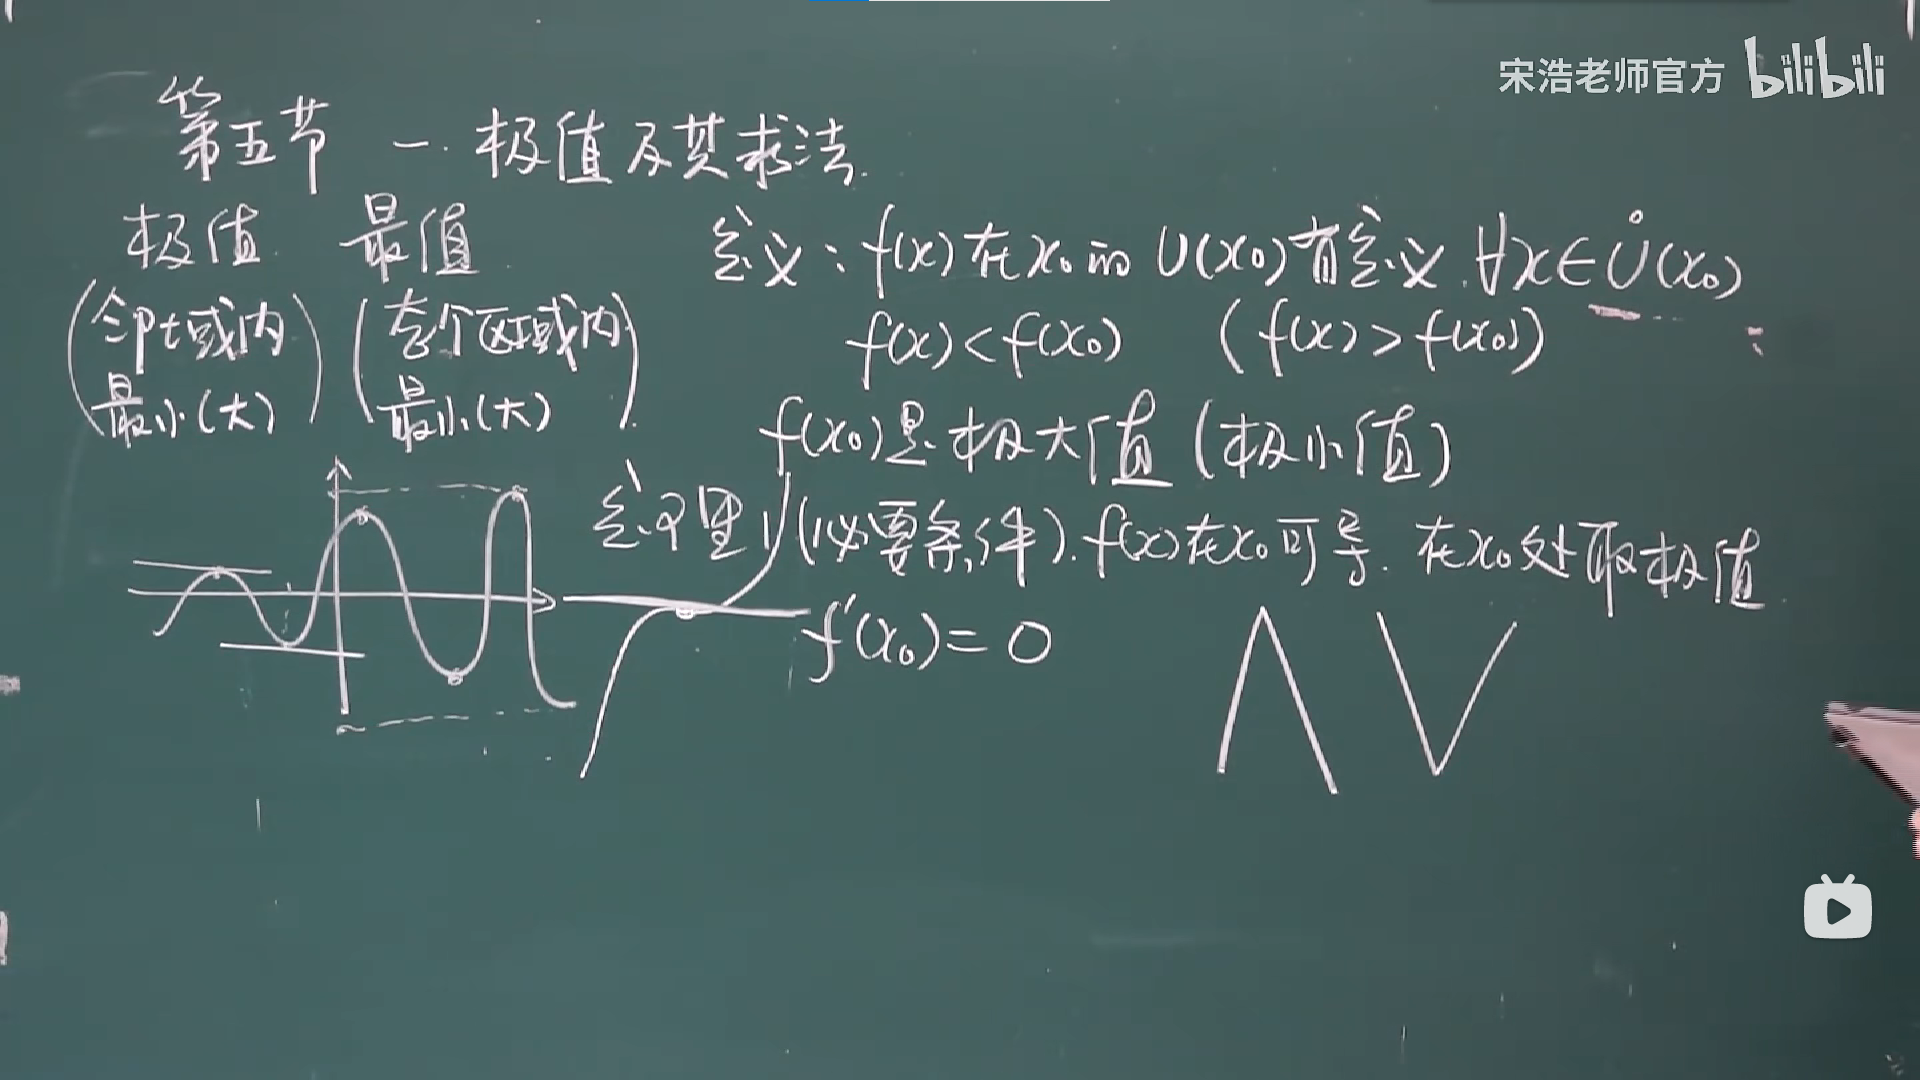 宋浩老师官方 bilibili
第五节 一. 极值及其求法.
极值 最值
(邻域内最小(大)) (整个区域内最小(大))
定义: f(x)在x₀的U(x₀)有定义. ∀x∈Ů(x₀)
f(x)<f(x₀) (f(x)>f(x₀))
f(x₀)是极大值(极小值)
定理1(必要条件). f(x)在x₀可导. 在x₀处取极值
f′(x₀)=0